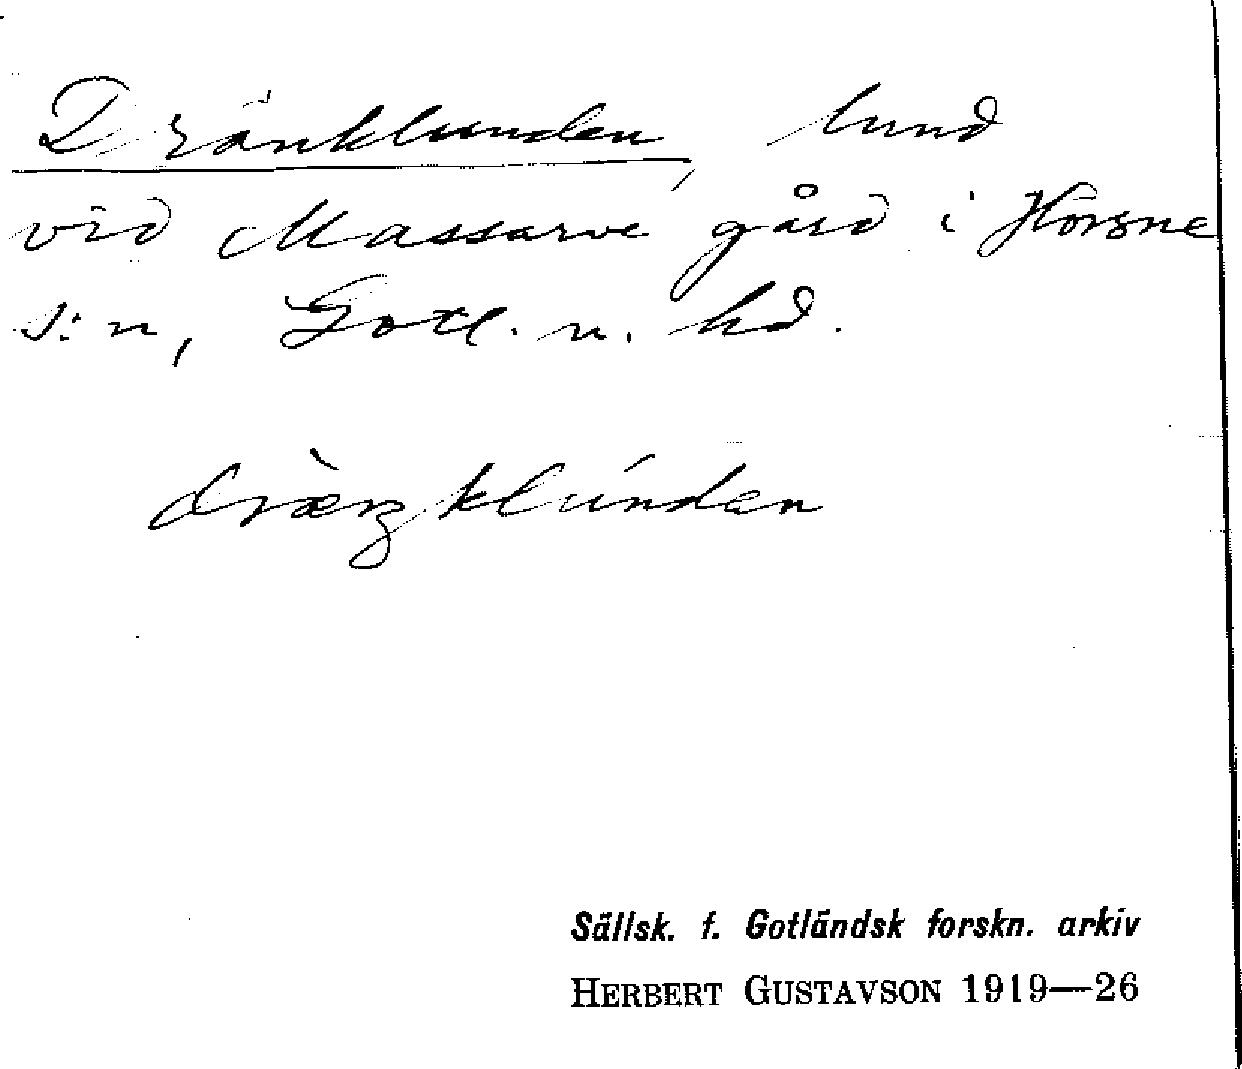 Dränklunden, lund
vid Massarve gård i Horsne
s:n, Gotl. n. hd.
dræ̀ŋklúnden
Sällsk. f. Gotländsk forskn. arkiv
HERBERT GUSTAVSON 1919—26